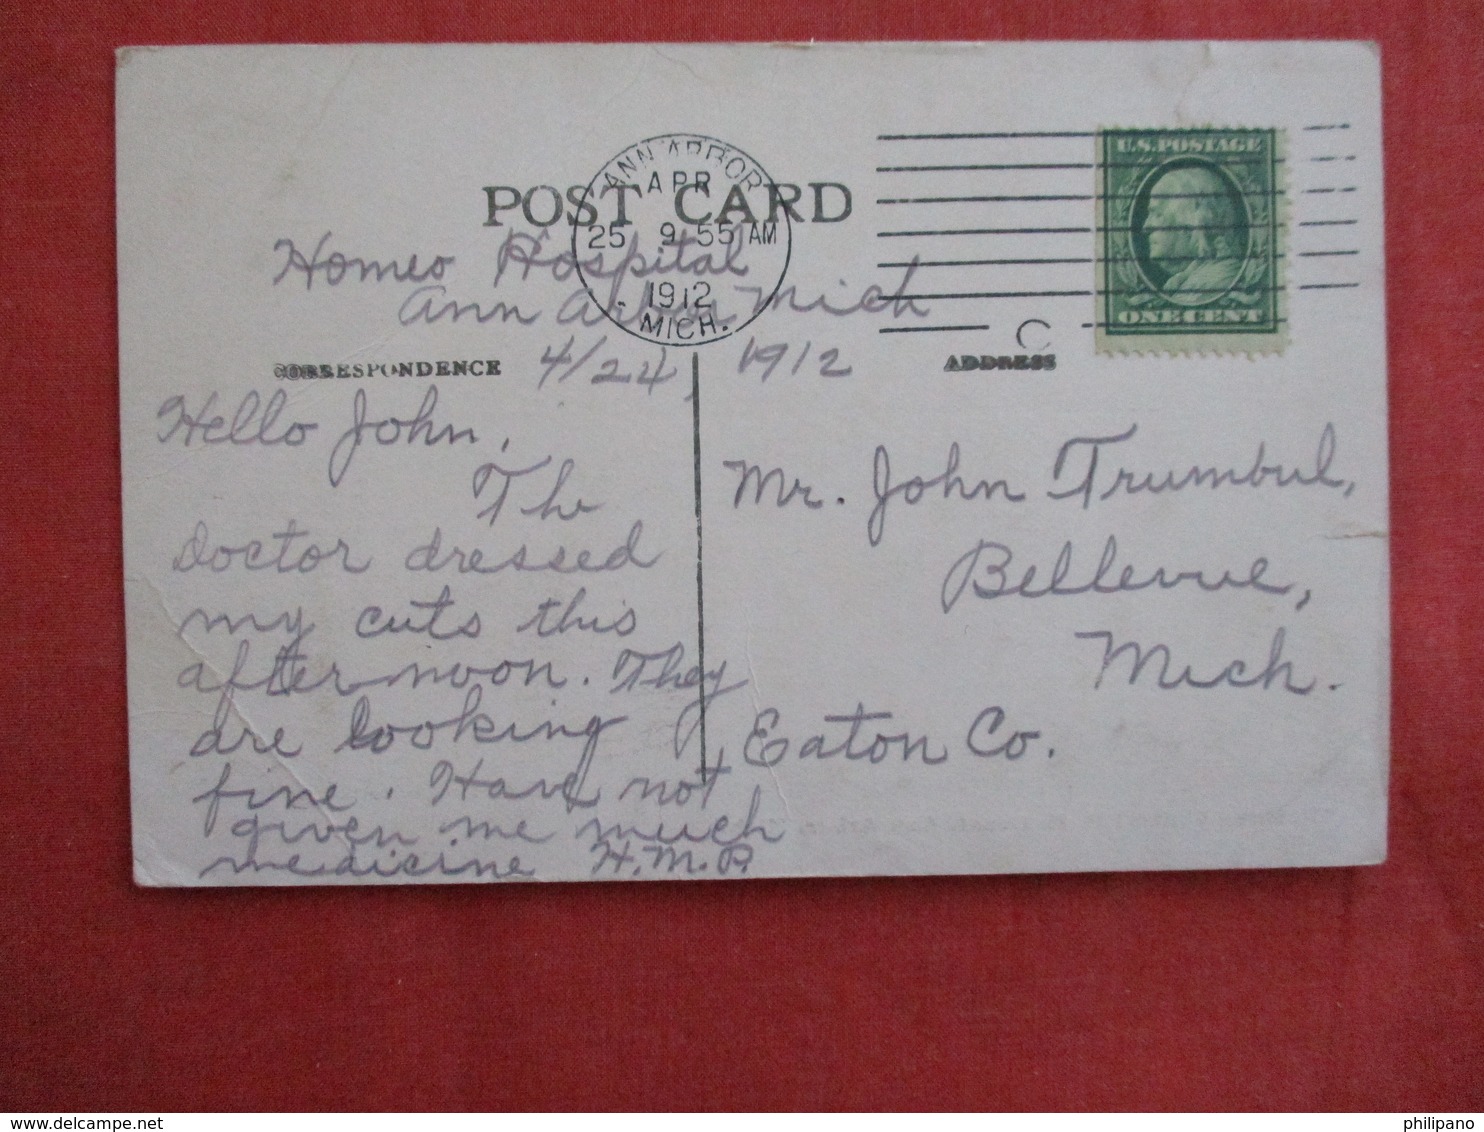 POST CARD
ANN ARBOR
APR
25 9 55 AM
1912
MICH.
U.S. POSTAGE
ONE CENT
C
Homeo Hospital
Ann Arbor Mich
CORRESPONDENCE
4/24, 1912
ADDRESS
Hello John,
The
Doctor dressed
my cuts this
afternoon. They
are looking
fine. Have not
given me much
medicine H.M.P.
Mr. John Trumbul,
Bellevue,
Mich.
Eaton Co.
philipano